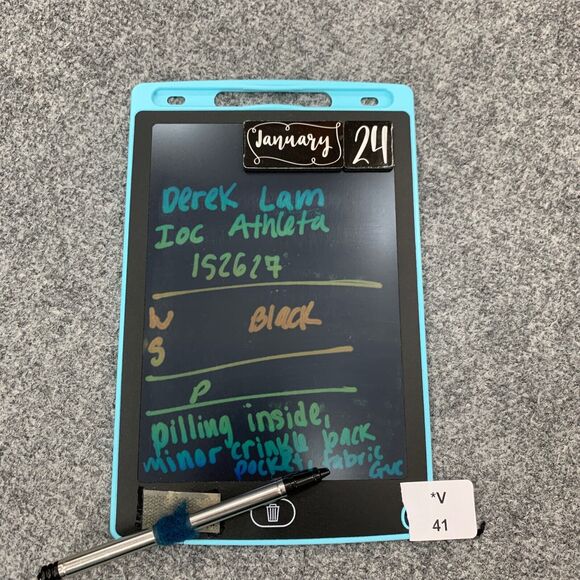 January 24
Derek Lam
Ioc Athleta
152627
W Black
S
P
pilling inside,
minor crinkle back
pocket, fabric
Guc
*V
41